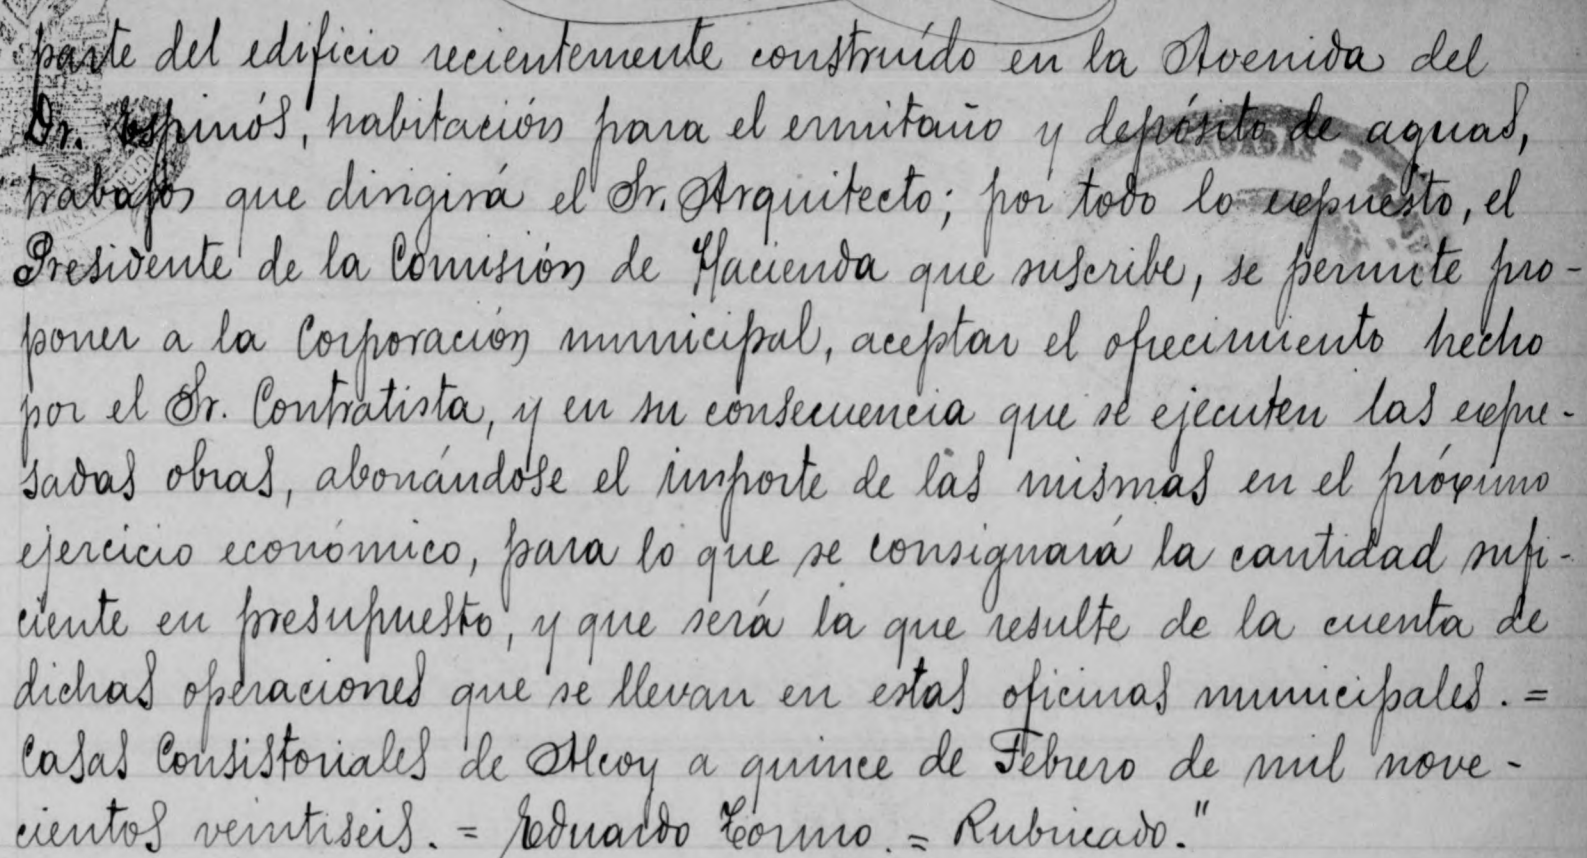 parte del edificio recientemente construído en la Avenida del
Dr. Espinós, habitación para el ermitaño y depósito de aguas,
trabajos que dirigirá el Sr. Arquitecto; por todo lo expuesto, el
Presidente de la Comisión de Hacienda que suscribe, se permite pro-
poner a la Corporación municipal, aceptar el ofrecimiento hecho
por el Sr. Contratista, y en su consecuencia que se ejecuten las expre-
sadas obras, abonándose el importe de las mismas en el próximo
ejercicio económico, para lo que se consignará la cantidad sufi-
ciente en presupuesto, y que será la que resulte de la cuenta de
dichas operaciones que se llevan en estas oficinas municipales. =
Casas Consistoriales de Alcoy a quince de Febrero de mil nove-
cientos veintiseis. = Eduardo Tormo. = Rubricado."